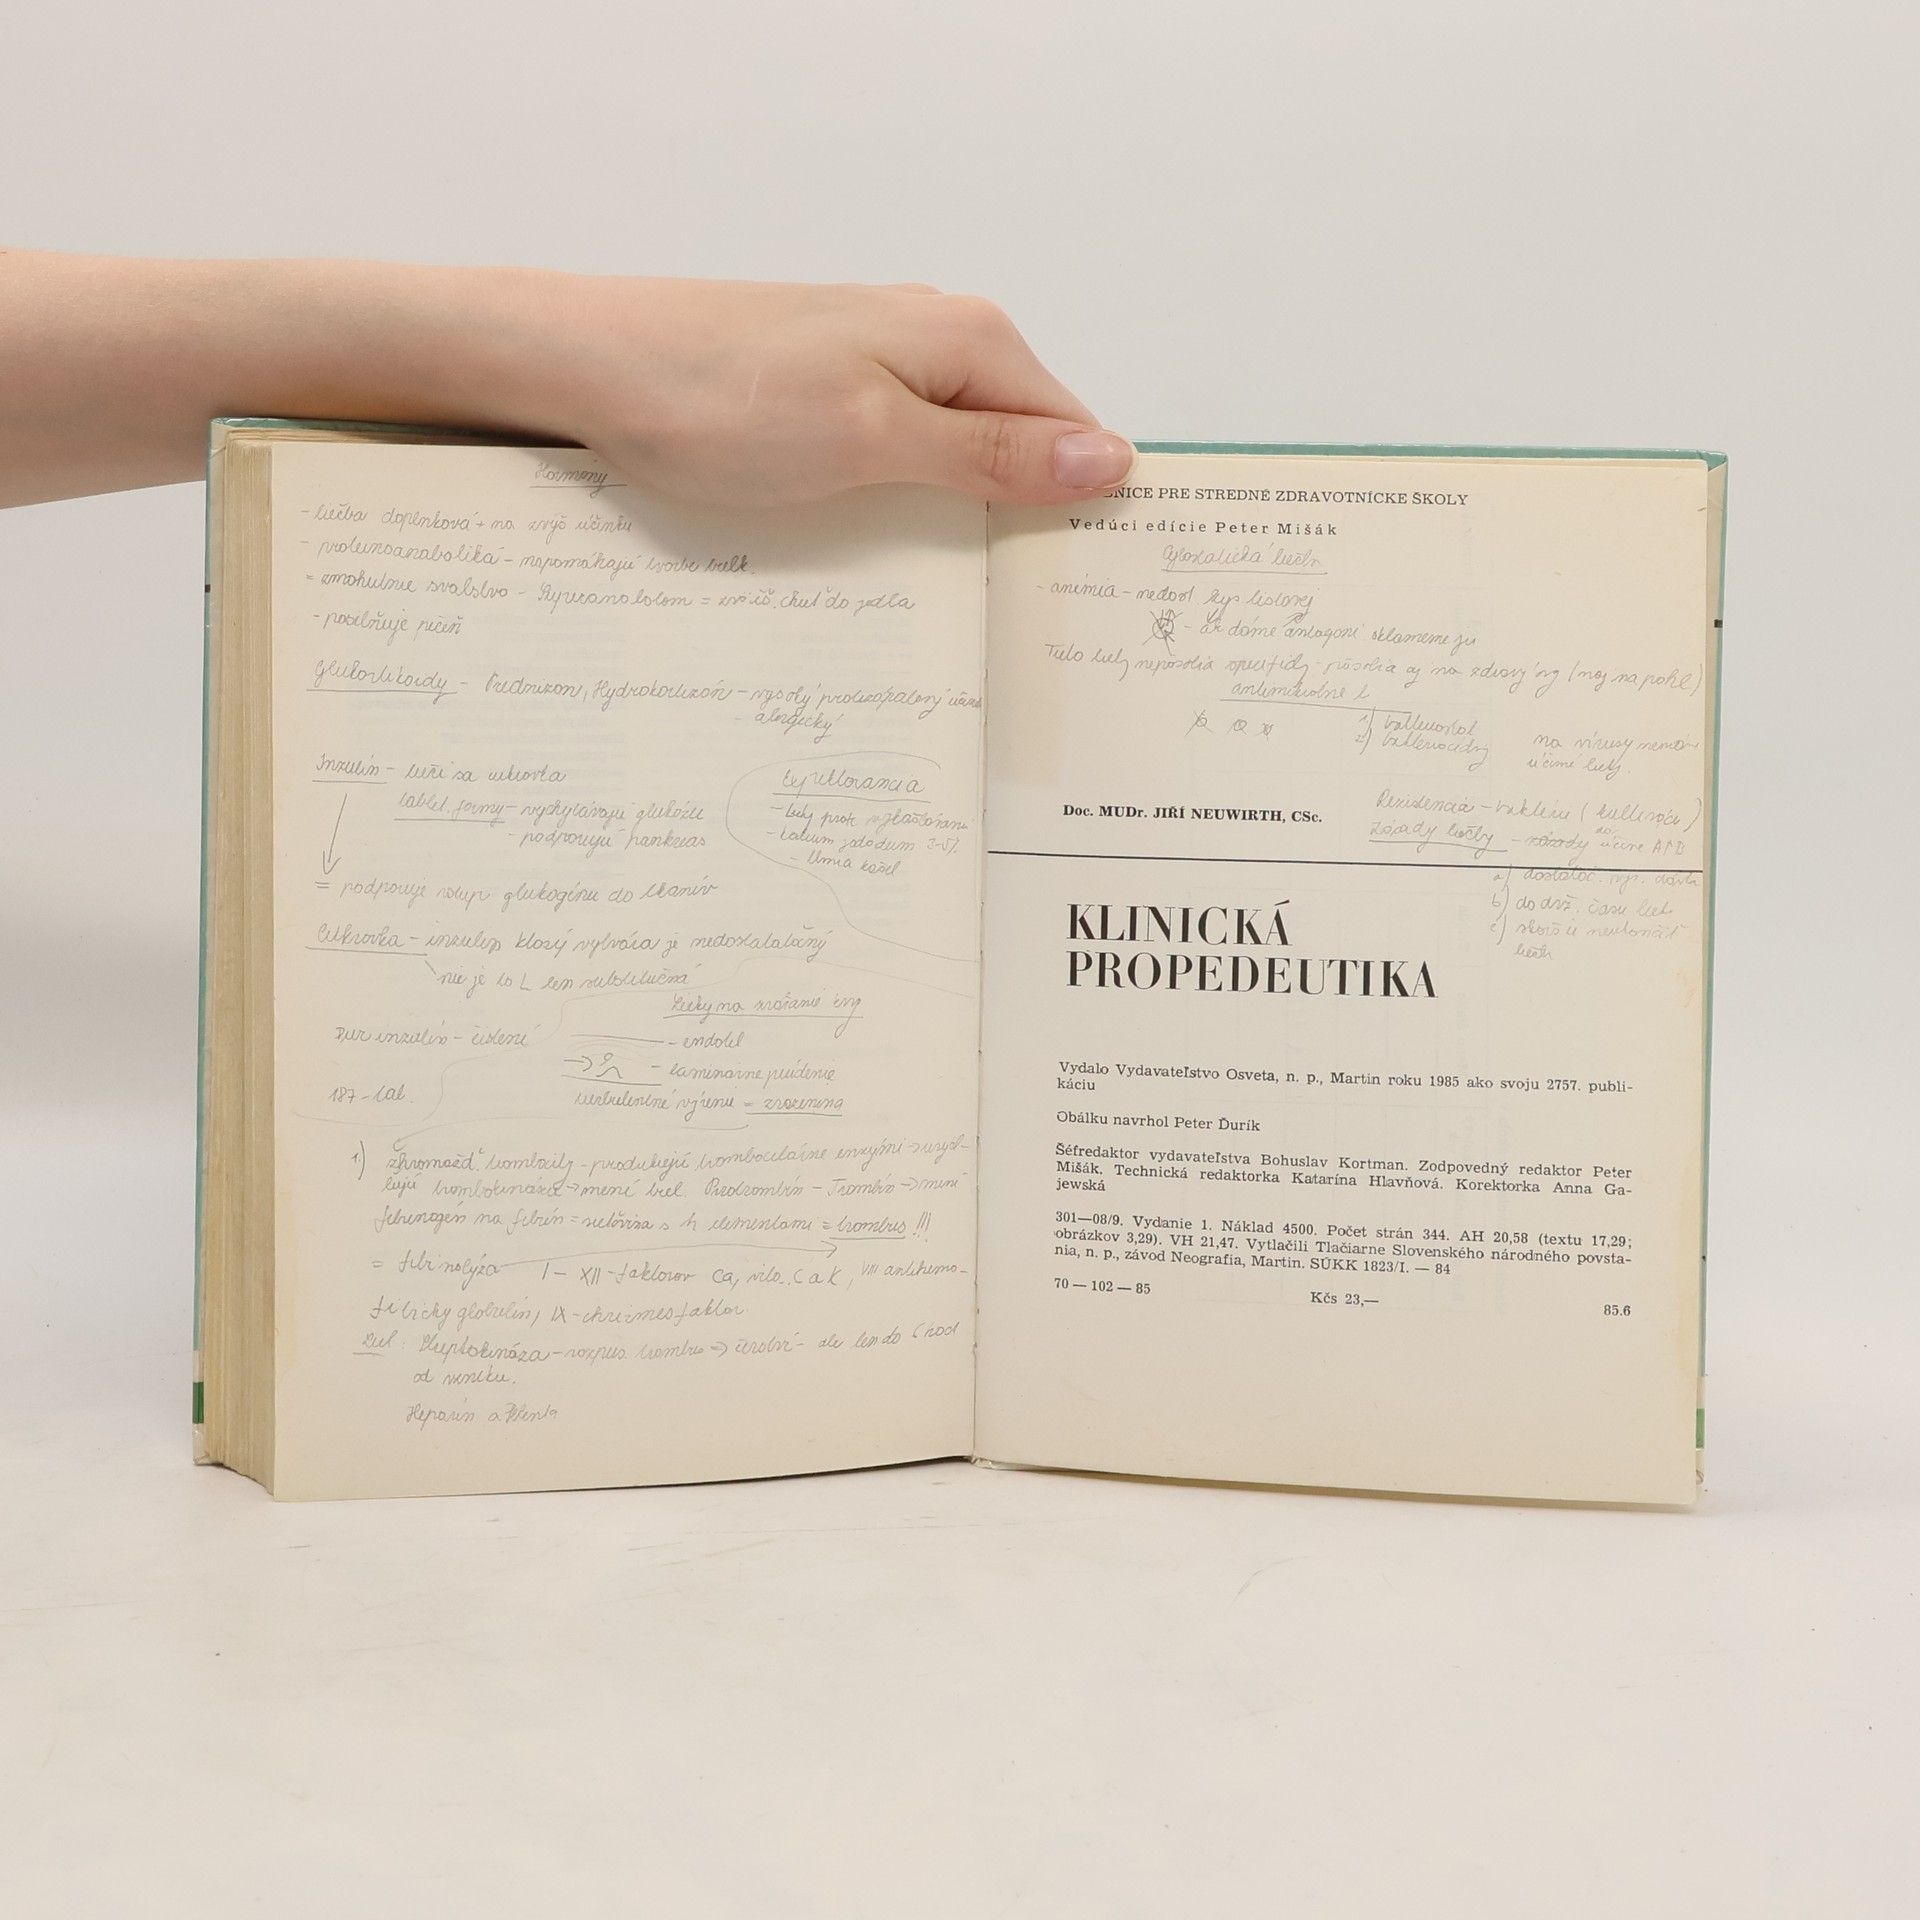 Hormóny
- liečba doplnková + na zvýš účinku
- proteinoanaboliká - napomáhajú tvorbe bielk.
= zmohutnie svalstvo - = zväčš. chuť do jedla
- posilňuje pečeň
Glukortikoidy - Prednizon, Hydrokortizón - vysoký protizápalový účinok
- alergický
Inzulín - lieči sa cukrovka
tablet. formy - vychytávajú glukózu
- podporujú pankreas
= podporuje vstup glukogénu do tkanív
Expektorancia
- lieky proti
- jodidum 3-5%
- tlmia kašel
Cukrovka - inzulín ktorý vytvára je nedostatočný
nie je to L len substitučná
Lieky na zrážanie krvi
inzulín - čistení
- endotel
- laminárne prúdenie
turbulentné vírenie = zrazenina
187 - tab.
1.) zhromažď. trombocity - produkujú trombocitárne enzými -> uvoľ-
ňujú trombokinázu -> mení biel. Protrombín - Trombín -> mení
fibrinogén na fibrín = sieťovina s k elementami = trombus !!!
= fibrinolýza I - XII - faktorov Ca, vit. C a K, VIII antihemo-
filický globulín, IX - chrizmas faktor.
Liek: Streptokináza - rozpus. trombus => čerství - ale len do 6 hod
od vzniku.
Heparín a Pelenta
BNICE PRE STREDNÉ ZDRAVOTNÍCKE ŠKOLY
Vedúci edície Peter Mišák
Cytostatická liečba
- anémia - nedost. kys listovej
- ak dáme antagoni sklameme ju
Tieto lieky nepôsobia špecificky - pôsobia aj na zdravý org (naj na pohl)
antimikróbne l
1) bakteriostat
2) baktericídny
na vírusy nemáme
účinné lieky.
Rezistencia - baktérií (kultivácia)
Zásady liečby - účinné ATB
a) dostatoč. vys. dávka
b) dodrž. času liek.
c) skôr neukončiť
liečb
Doc. MUDr. JIŘÍ NEUWIRTH, CSc.
KLINICKÁ
PROPEDEUTIKA
Vydalo Vydavateľstvo Osveta, n. p., Martin roku 1985 ako svoju 2757. publi-
káciu
Obálku navrhol Peter Ďurík
Šéfredaktor vydavateľstva Bohuslav Kortman. Zodpovedný redaktor Peter
Mišák. Technická redaktorka Katarína Hlavňová. Korektorka Anna Ga-
jewská
301—08/9. Vydanie 1. Náklad 4500. Počet strán 344. AH 20,58 (textu 17,29;
obrázkov 3,29). VH 21,47. Vytlačili Tlačiarne Slovenského národného povsta-
nia, n. p., závod Neografia, Martin. SÚKK 1823/I. — 84
70 — 102 — 85
Kčs 23,—
85.6